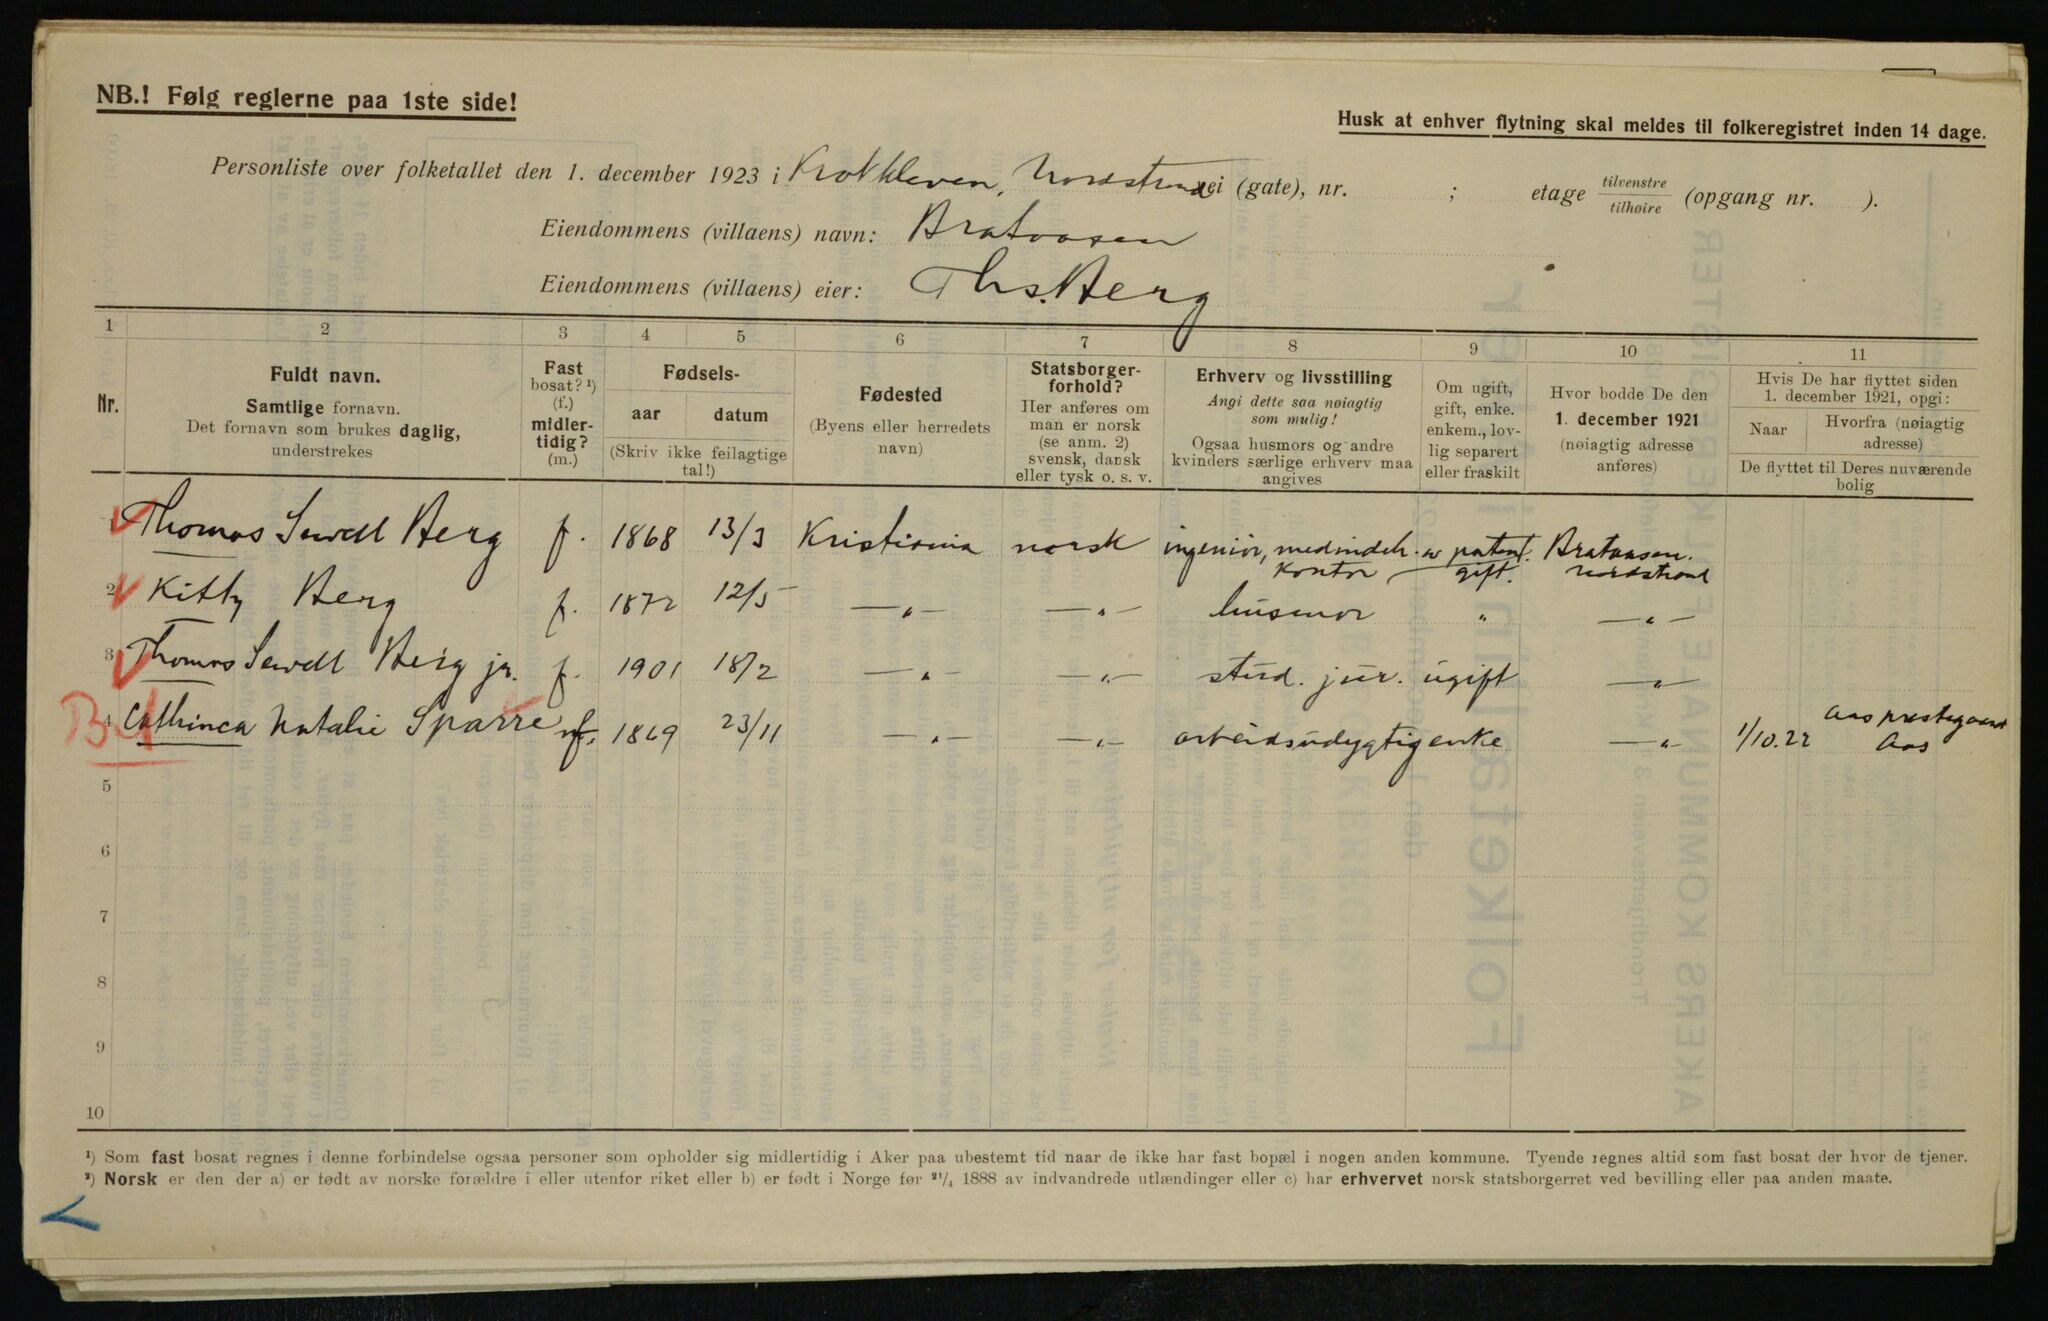 NB.! Følg reglerne paa 1ste side!
Husk at enhver flytning skal meldes til folkeregistret inden 14 dage.
Personliste over folketallet den 1. december 1923 i Krokkleven, Nordstrand vei (gate), nr. ; etage tilvenstre tilhøire (opgang nr. ).
Eiendommens (villaens) navn: Brataasen
Eiendommens (villaens) eier: Ths. Berg
1 2 3 4 5 6 7 8 9 10 11
Nr.
Fuldt navn.
Samtlige fornavn.
Det fornavn som brukes daglig,
understrekes
Fast
bosat? ¹)
(f.)
midler-
tidig?
(m.)
Fødsels-
aar datum
(Skriv ikke feilagtige
tal!)
Fødested
(Byens eller herredets
navn)
Statsborger-
forhold?
Her anføres om
man er norsk
(se anm. 2)
svensk, dansk
eller tysk o. s. v.
Erhverv og livsstilling
Angi dette saa nøiagtig
som mulig!
Ogsaa husmors og andre
kvinders særlige erhverv maa
angives
Om ugift,
gift, enke.
enkem., lov-
lig separert
eller fraskilt
Hvor bodde De den
1. december 1921
(nøiagtig adresse
anføres)
Hvis De har flyttet siden
1. december 1921, opgi:
Naar Hvorfra (nøiagtig
adresse)
De flyttet til Deres nuværende
bolig
1 Thomas Sewell Berg f. 1868 13/3 Kristiania norsk ingeniør, medindeh. av patent. Brataasen.
kontor gift. Nordstrand
2 Kitty Berg f. 1872 12/5 —„— —„— husmor „ —„—
3 Thomas Sewell Berg jr. f. 1901 18/2 —„— —„— stud. jur. ugift —„—
4 Cathinca Natalie Sparre f. 1869 23/11 —„— —„— arbeidsudygtig enke —„— 1/10.22 Aas prestegaard
Aas
5
6
7
8
9
10
¹) Som fast bosat regnes i denne forbindelse ogsaa personer som opholder sig midlertidig i Aker paa ubestemt tid naar de ikke har fast bopæl i nogen anden kommune. Tyende regnes altid som fast bosat der hvor de tjener.
²) Norsk er den der a) er født av norske forældre i eller utenfor riket eller b) er født i Norge før ²¹/₄ 1888 av indvandrede utlændinger eller c) har erhvervet norsk statsborgerret ved bevilling eller paa anden maate.